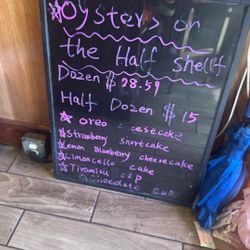 Oysters on
the Half Shell
Dozen $ 28.59
Half Dozen $ 15
oreo cheesecake
Strawberry Shortcake
Lemon Blueberry cheesecake
Limoncello cake
Tiramisu cup
Chocolate cup